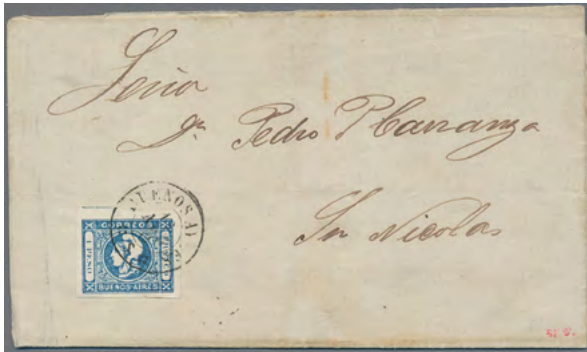 Señor
Dn Pedro P Carranza
Sn Nicolas
BUENOS AI
CORREOS
1 PESO
BUENOS AIRES